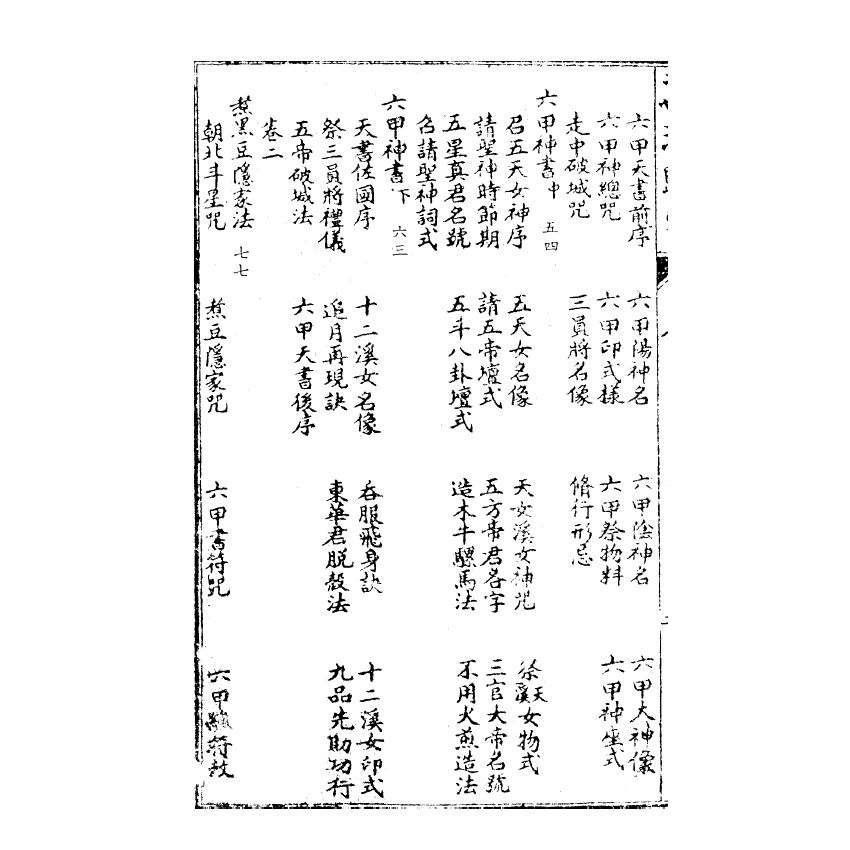 六甲天書前序 六甲陽神名 六甲陰神名 六甲大神像
六甲神總咒 六甲印式樣 六甲祭物料 六甲神坐式
走中破城咒 三員將名像 脩行形忌
六甲神書中 五四
召五天女神序 五天女名像 天女溪女神咒 祭天溪女物式
請聖神時節期 請五帝壇式 五方帝君名字 三官大帝名號
五星真君名號 五斗八卦壇式 造木牛騾馬法 不用火煎造法
召請聖神詞式
六甲神書下 六三
天書佐國序 十二溪女名像 吞服飛身訣 十二溪女印式
祭三員將禮儀 追月再現訣 東華君脱殼法 九品先助功行
五帝破城法 六甲天書後序
卷二
煮黑豆隱家法 七七
朝北斗星咒 煮豆隱家咒 六甲書符咒 六甲符